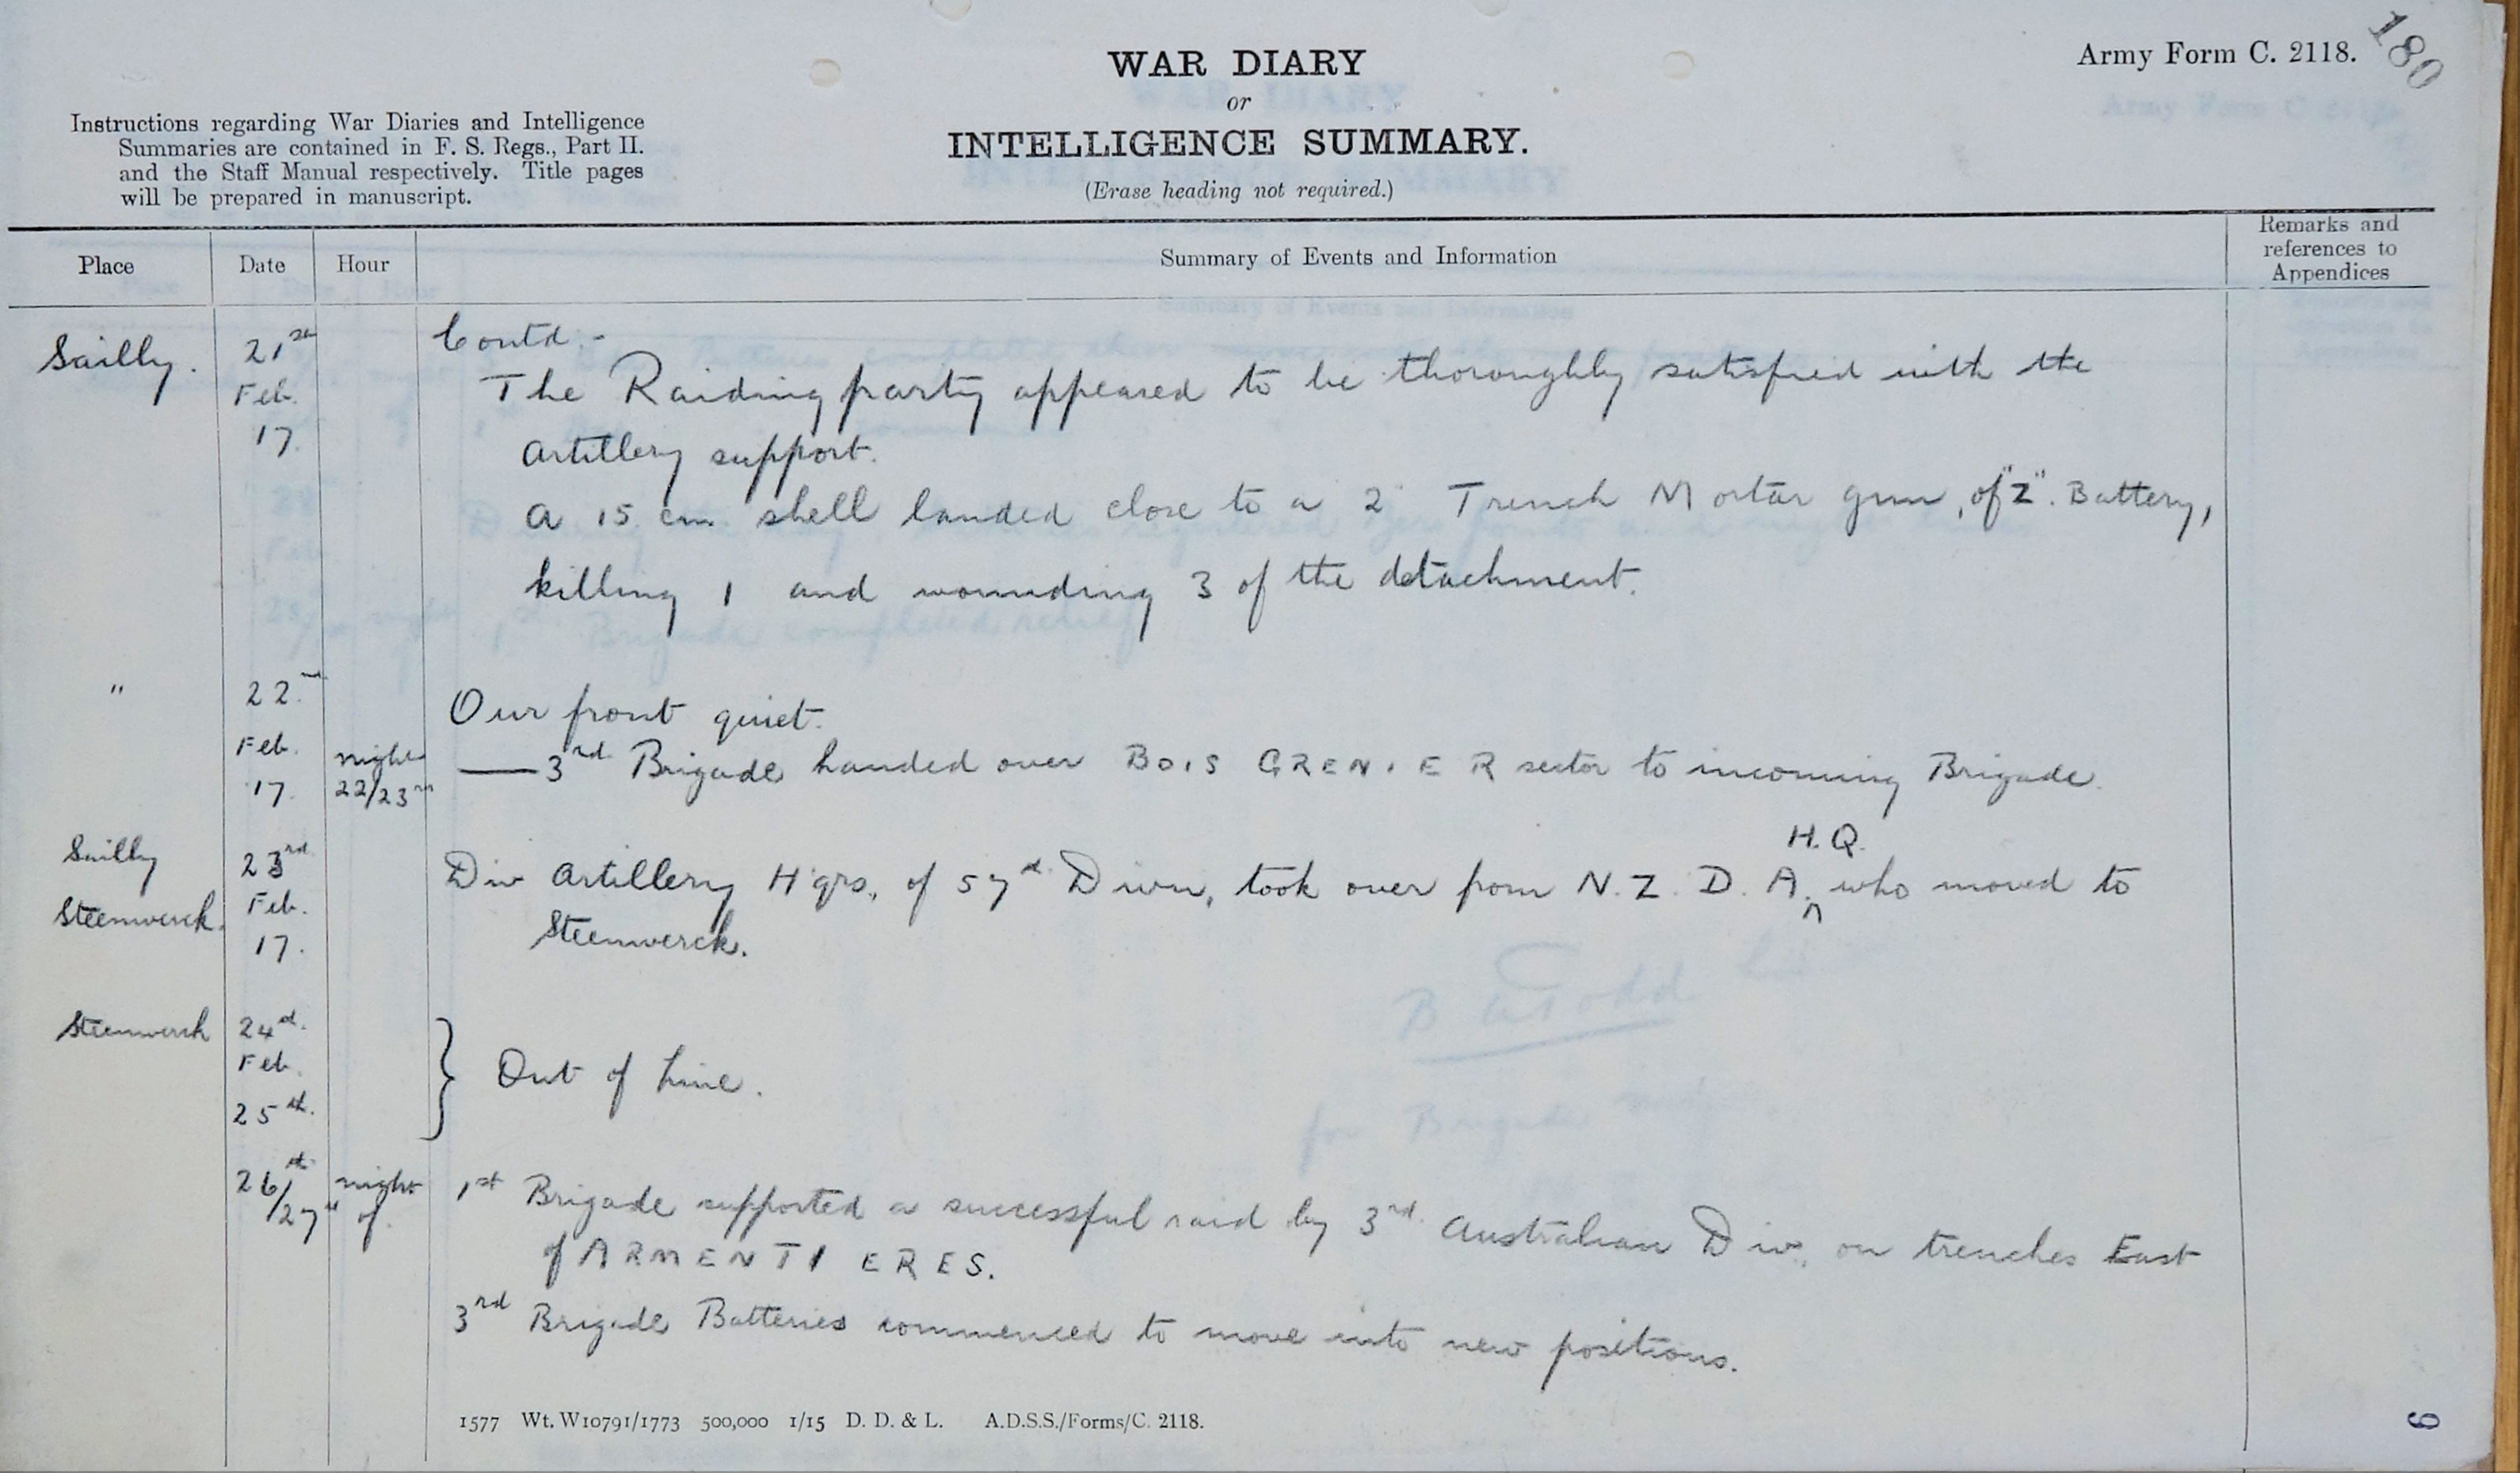 180
Army Form C. 2118.
WAR DIARY
or
INTELLIGENCE SUMMARY.
(Erase heading not required.)
Instructions regarding War Diaries and Intelligence
Summaries are contained in F. S. Regs., Part II.
and the Staff Manual respectively. Title pages
will be prepared in manuscript.
Place Date Hour Summary of Events and Information Remarks and references to Appendices
Sailly. 21st Feb. 17. Contd:-
The Raiding party appeared to be thoroughly satisfied with the
Artillery support.
A 15 cm shell landed close to a 2" Trench Mortar gun, of "Z". Battery,
killing 1 and wounding 3 of the detachment.
" 22nd Feb. 17. Our front quiet.
night 22/23rd — 3rd Brigade handed over BOIS GRENIER sector to incoming Brigade.
Sailly 23rd Div Artillery Hqrs. of 57th Divn, took over from N.Z.D.A. H.Q. who moved to
Steenwerck. Feb. 17. Steenwerck.
Steenwerck 24th Feb. 25th. } Out of Line.
26th/27th night of. 1st Brigade supported a successful raid by 3rd Australian Div, on trenches East
of ARMENTIERES.
3rd Brigade Batteries commenced to move into new positions.
1577 Wt. W10791/1773 500,000 1/15 D. D. & L. A.D.S.S./Forms/C. 2118.